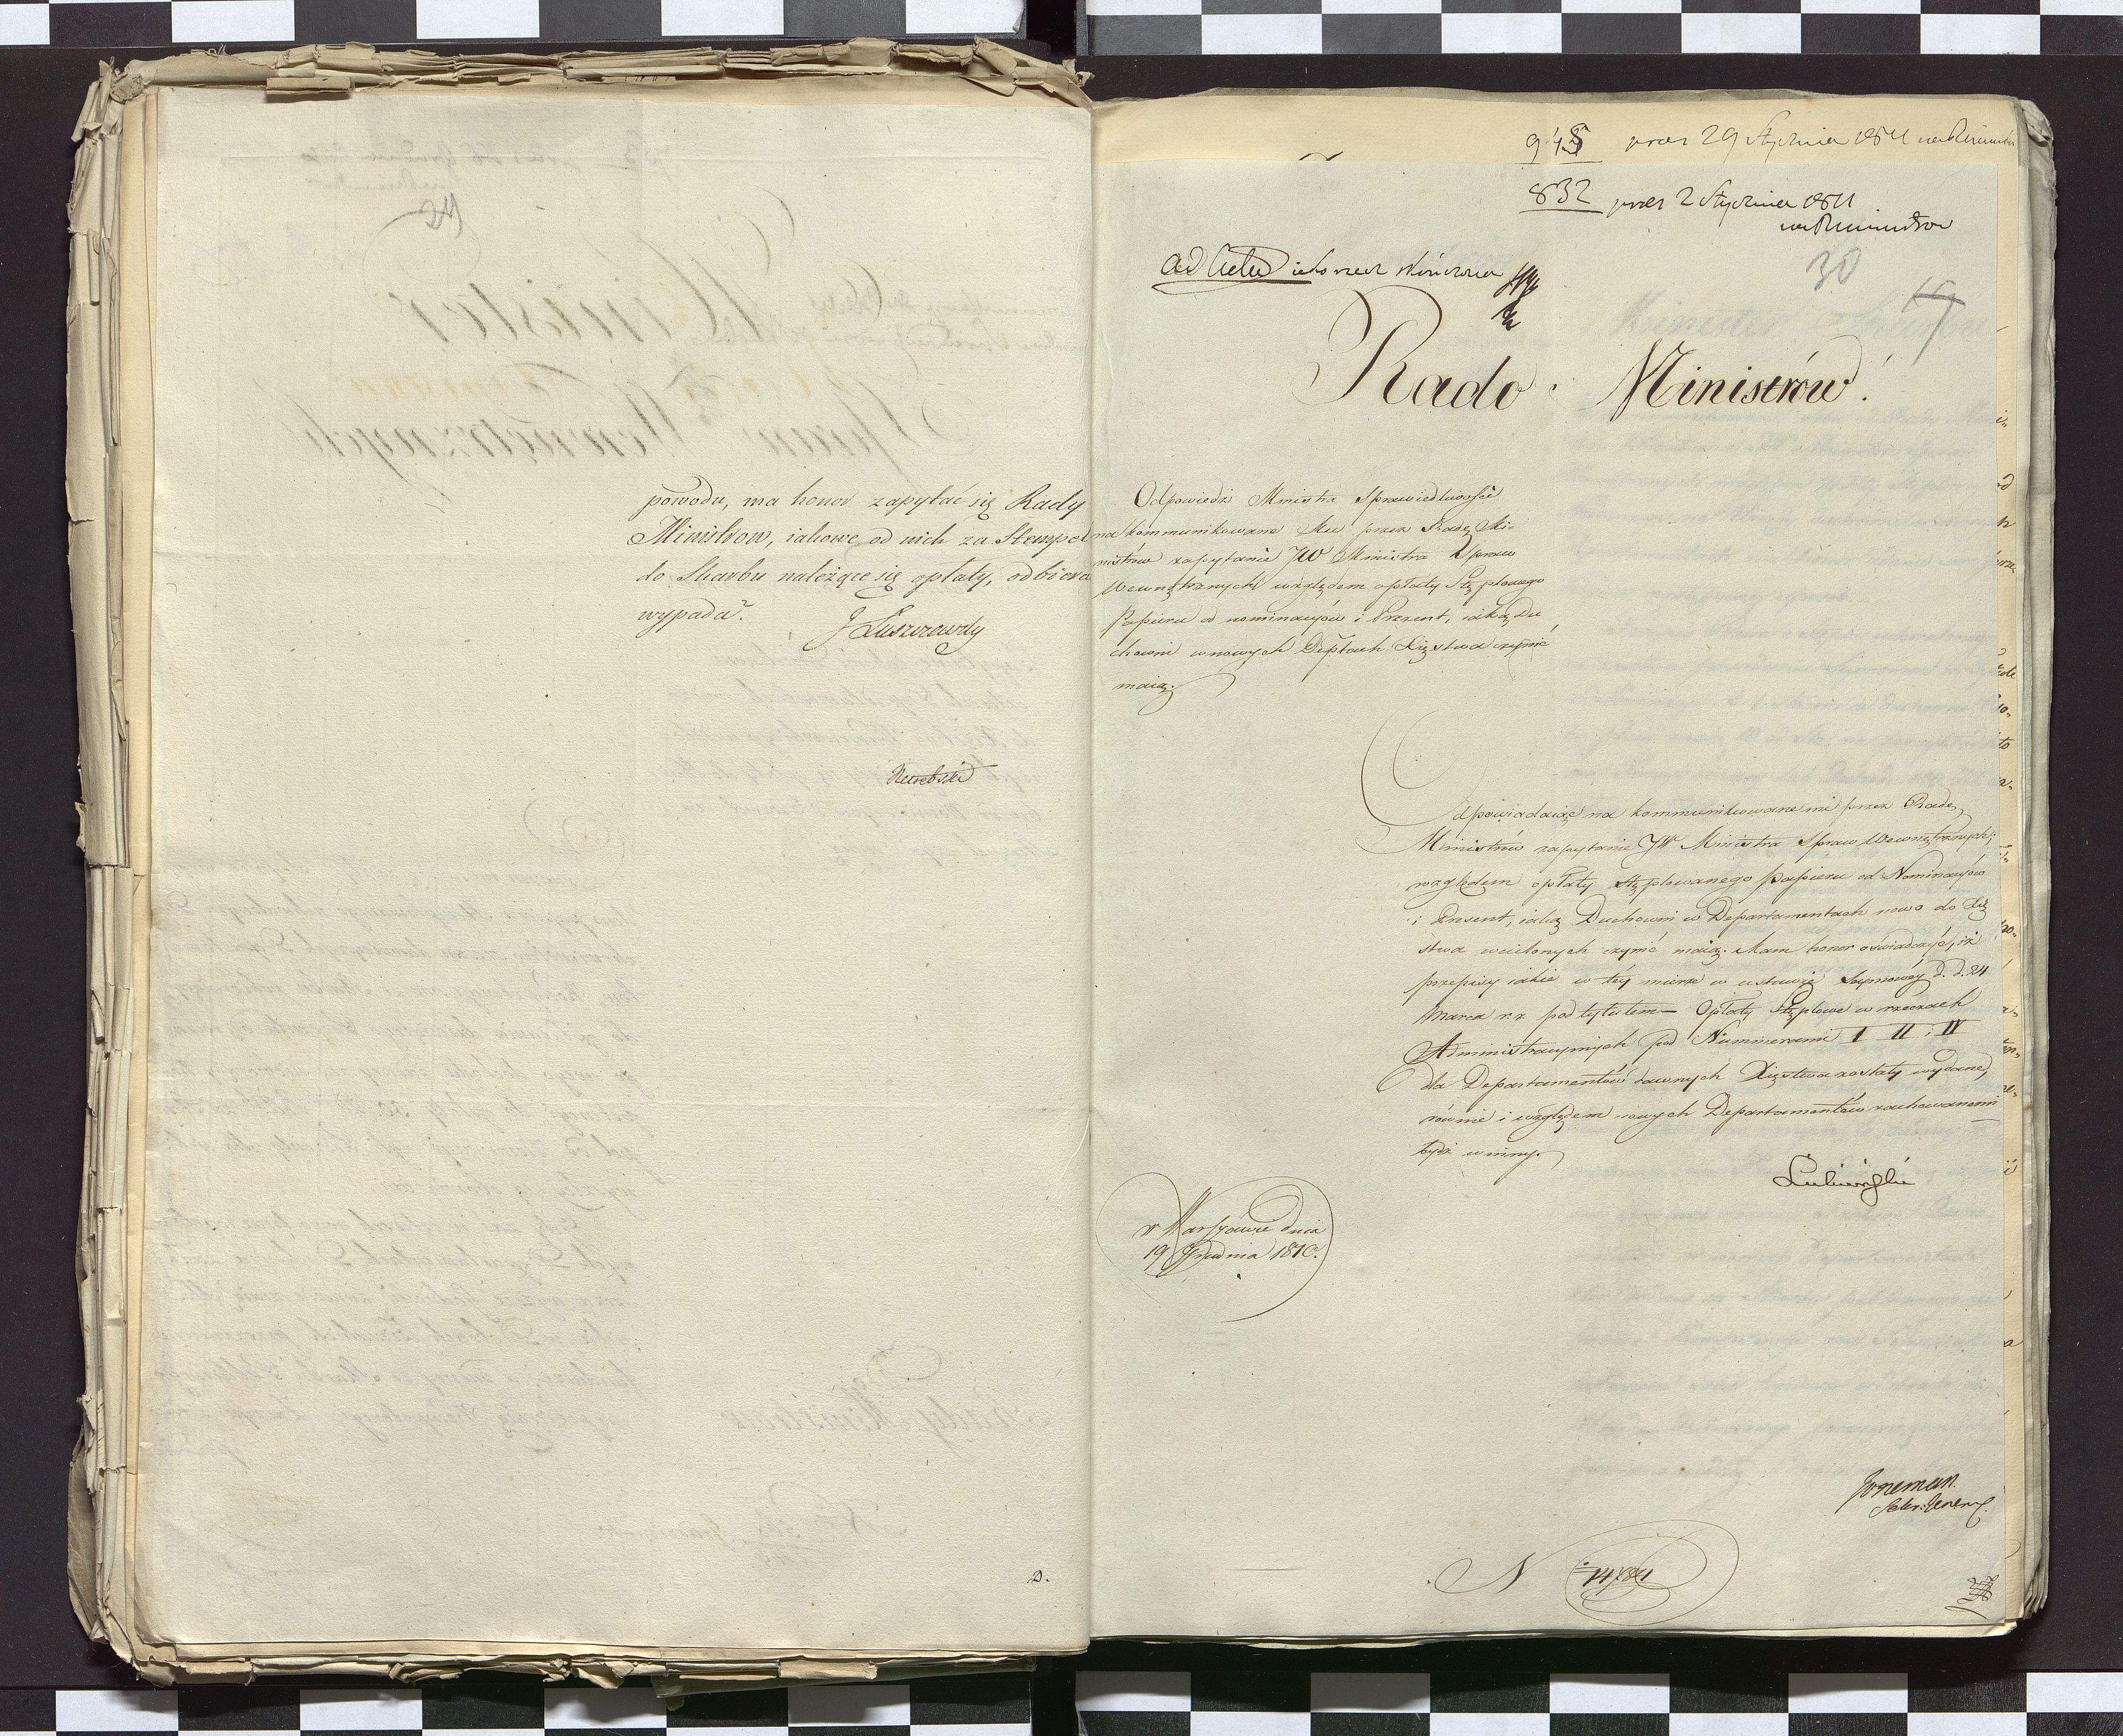 powodu, ma honor zapytać się Rady
Ministrow, iakowe od nich za Stempel
do Skarbu należące się opłaty, odbiera
wypada?
J Łuszczewsky
Netrebski
2.
945 prez 29 Stycznia 1811
832 prez 2 Stycznia 1811
ad Acta iako rzecz skończona
30
19
Rado Ministrów!
Odpowiedź Ministra Sprawiedliwości
na kommunikowane Mu przez Radę Mi-
nistrów zapytanie JW Ministra Spraw
Wewnętrznych względem opłaty Stęplowego
Papieru od nominacyów i Prezent, iaką Du
chowni w nowych Deptach Xięstwa czynić
maią.
Odpowiadaiąc na kommunikowane mi przez Radę
Ministrów zapytanie JW Ministra Spraw Wewnętrznych,
względem opłaty Stęplowanego papieru od Nominacyów
i Prezent, iaką Duchowni w Departamentach nowo do Xię
stwa wcielonych czynić maią. Mam honor oświadczyć, iż
przepisy iakie w téy mierze w ustawie Seymowéy d. d. 24
Marca r. z. pod tytułem — Opłaty Stęplowe w rzeczach
Administracyinych pod Nummerami I II i IV
dla Departamentów dawnych Xięstwa zostały wydane,
równie i względem nowych Departamentów zachowanemi
bydź winny.
Łubieński
w Warszawie dnia
19 Grudnia 1810.
Joneman.
Sekr: Gener.
N 14784